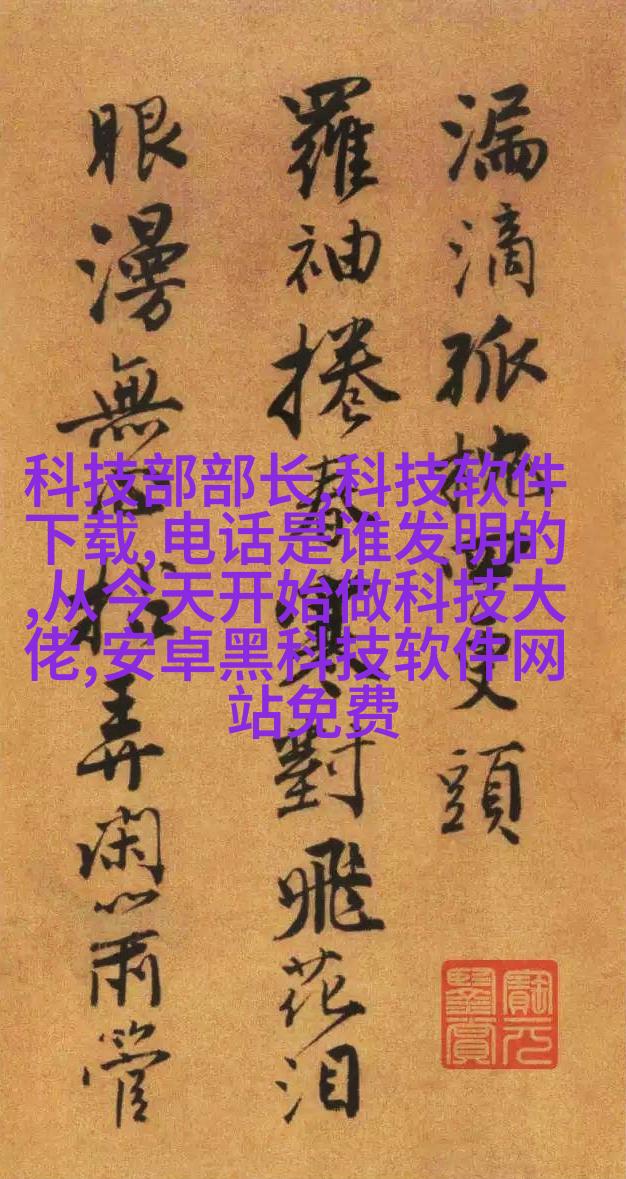 漏滴孤更頭
羅袖捲春寒對飛花泪
眼漫無弄閑心兩管
科技部部长,科技软件
下载,电话是谁发明的
,从今天开始做科技大
佬,安卓黑科技软件网
站免费